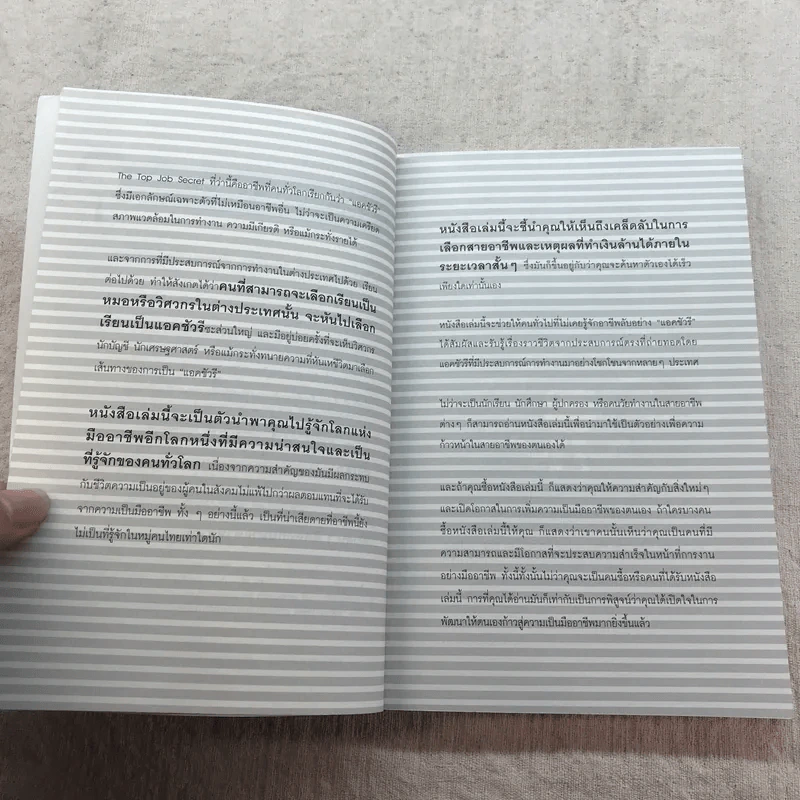 The Top Job Secret ที่ว่านี้คืออาชีพที่คนทั่วโลกเรียกกันว่า "แอคชัวรี"
ซึ่งมีเอกลักษณ์เฉพาะตัวที่ไม่เหมือนอาชีพอื่น ไม่ว่าจะเป็นความเครียด
สภาพแวดล้อมในการทำงาน ความมีเกียรติ หรือแม้กระทั่งรายได้
และจากการที่มีประสบการณ์จากการทำงานในต่างประเทศไปด้วย เรียน
ต่อไปด้วย ทำให้สังเกตได้ว่าคนที่สามารถจะเลือกเรียนเป็น
หมอหรือวิศวกรในต่างประเทศนั้น จะหันไปเลือก
เรียนเป็นแอคชัวรีซะส่วนใหญ่ และมีอยู่บ่อยครั้งที่จะเห็นวิศวกร
นักบัญชี นักเศรษฐศาสตร์ หรือแม้กระทั่งทนายความที่หันเหชีวิตมาเลือก
เส้นทางของการเป็น "แอคชัวรี"
หนังสือเล่มนี้จะเป็นตัวนำพาคุณไปรู้จักโลกแห่ง
มืออาชีพอีกโลกหนึ่งที่มีความน่าสนใจและเป็น
ที่รู้จักของคนทั่วโลก เนื่องจากความสำคัญของมันมีผลกระทบ
กับชีวิตความเป็นอยู่ของผู้คนในสังคมไม่แพ้ไปกว่าผลตอบแทนที่จะได้รับ
จากความเป็นมืออาชีพ ทั้ง ๆ อย่างนี้แล้ว เป็นที่น่าเสียดายที่อาชีพนี้ยัง
ไม่เป็นที่รู้จักในหมู่คนไทยเท่าใดนัก
หนังสือเล่มนี้จะชี้นำคุณให้เห็นถึงเคล็ดลับในการ
เลือกสายอาชีพและเหตุผลที่ทำเงินล้านได้ภายใน
ระยะเวลาสั้น ๆ ซึ่งมันก็ขึ้นอยู่กับว่าคุณจะค้นหาตัวเองได้เร็ว
เพียงใดเท่านั้นเอง
หนังสือเล่มนี้จะช่วยให้คนทั่วไปที่ไม่เคยรู้จักอาชีพลับอย่าง "แอคชัวรี"
ได้สัมผัสและรับรู้เรื่องราวชีวิตจากประสบการณ์ตรงที่ถ่ายทอดโดย
แอคชัวรีที่มีประสบการณ์การทำงานมาอย่างโชกโชนจากหลายๆ ประเทศ
ไม่ว่าจะเป็นนักเรียน นักศึกษา ผู้ปกครอง หรือคนวัยทำงานในสายอาชีพ
ต่างๆ ก็สามารถอ่านหนังสือเล่มนี้เพื่อนำมาใช้เป็นตัวอย่างเพื่อความ
ก้าวหน้าในสายอาชีพของตนเองได้
และถ้าคุณซื้อหนังสือเล่มนี้ ก็แสดงว่าคุณให้ความสำคัญกับสิ่งใหม่ๆ
และเปิดโอกาสในการเพิ่มความเป็นมืออาชีพของตนเอง ถ้าใครบางคน
ซื้อหนังสือเล่มนี้ให้คุณ ก็แสดงว่าเขาคนนั้นเห็นว่าคุณเป็นคนที่มี
ความสามารถและมีโอกาสที่จะประสบความสำเร็จในหน้าที่การงาน
อย่างมืออาชีพ ทั้งนี้ทั้งนั้นไม่ว่าคุณจะเป็นคนซื้อหรือคนที่ได้รับหนังสือ
เล่มนี้ การที่คุณได้อ่านมันก็เท่ากับเป็นการพิสูจน์ว่าคุณได้เปิดใจในการ
พัฒนาให้ตนเองก้าวสู่ความเป็นมืออาชีพมากยิ่งขึ้นแล้ว